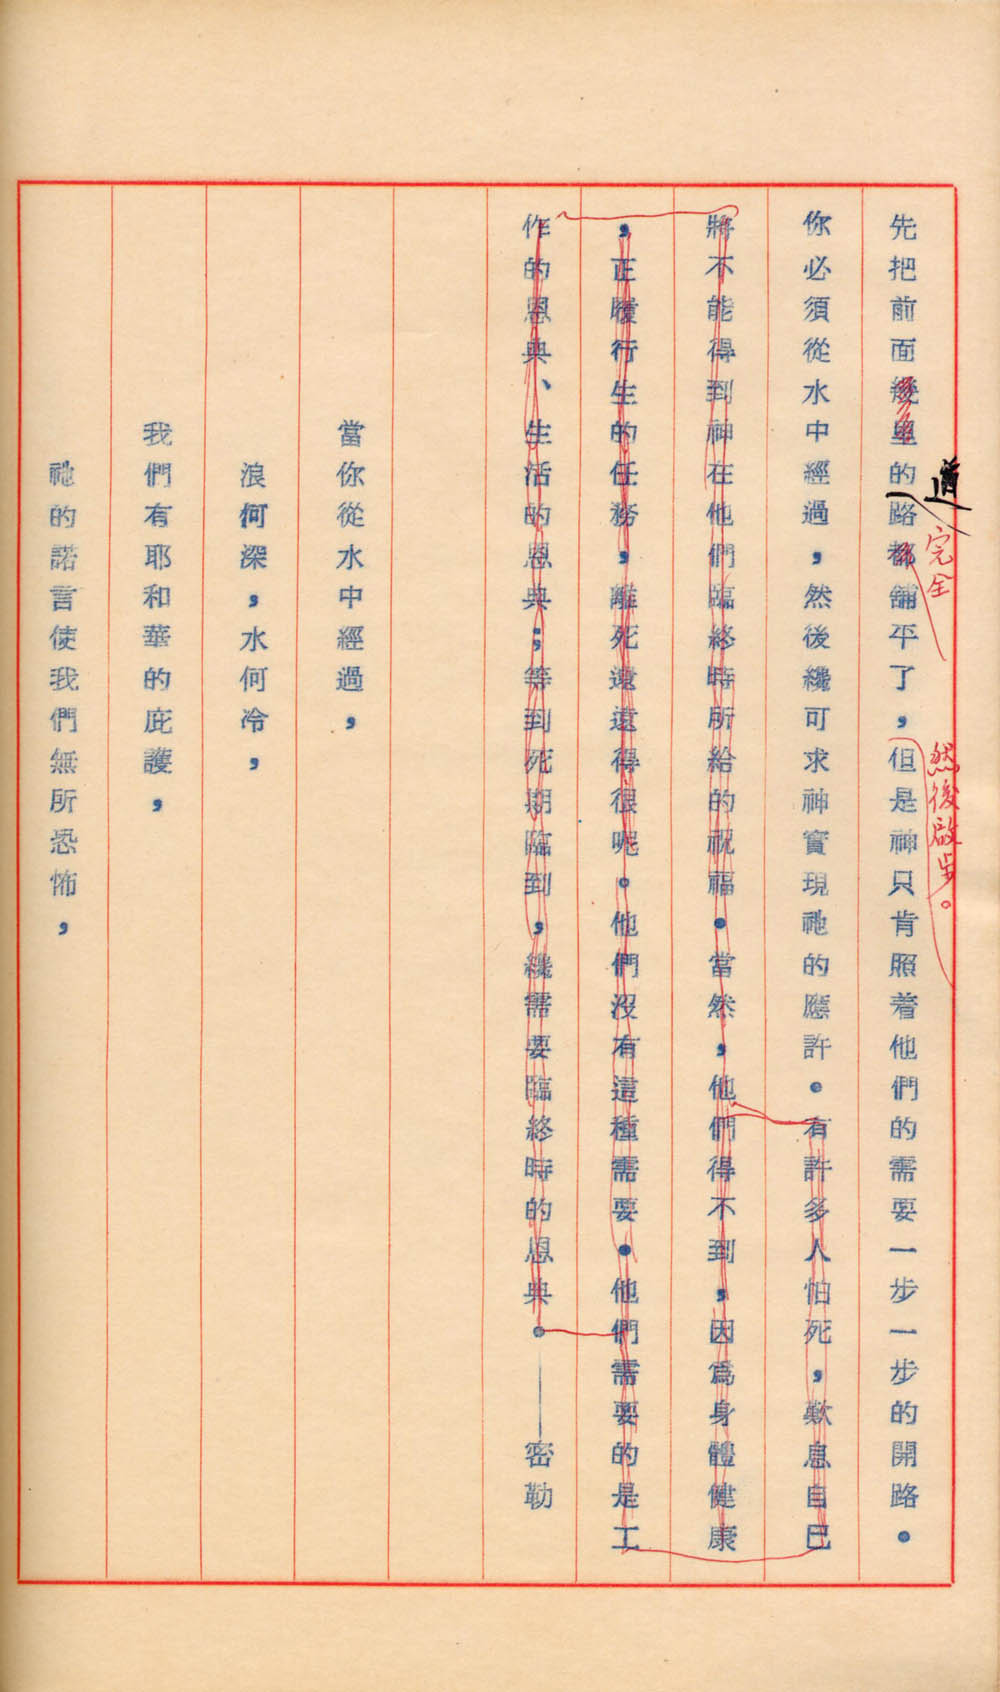 先把前面幾里的路都舖平了，但是神只肯照着他們的需要一步一步的開路。
道
完全
然後啟步。
你必須從水中經過，然後纔可求神實現祂的應許。有許多人怕死，歎息自己
將不能得到神在他們臨終時所給的祝福。當然，他們得不到，因為身體健康
，正履行生的任務，離死還遠得很呢。他們沒有這種需要。他們需要的是工
作的恩典、生活的恩典；等到死期臨到，纔需要臨終時的恩典。——密勒
當你從水中經過，
浪何深，水何冷，
我們有耶和華的庇護，
祂的諾言使我們無所恐怖，